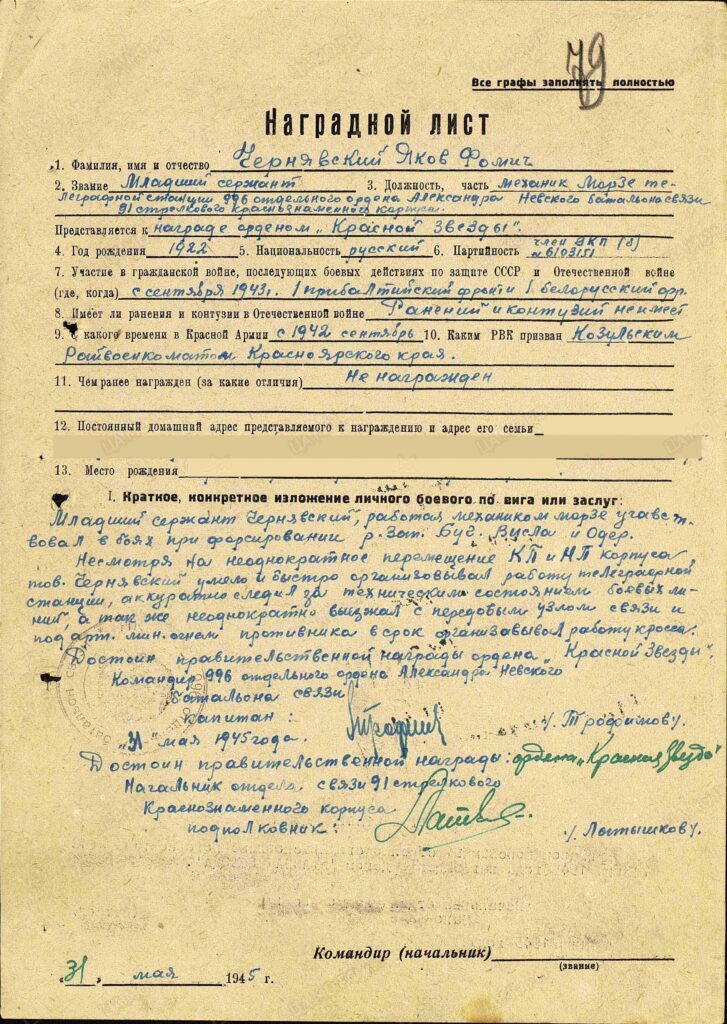 79
Все графы заполнять полностью
Наградной лист
1. Фамилия, имя и отчество Чернявский Яков Фомич
2. Звание Младший сержант 3. Должность, часть механик Морзе те-
леграфной станции 996 отдельного ордена Александра Невского батальона связи
91 стрелкового Краснознаменного корпуса.
Представляется к награде орденом „Красной Звезды".
4. Год рождения 1922 5. Национальность русский 6. Партийность член ВКП (б)
№6103151
7. Участие в гражданской войне, последующих боевых действиях по защите СССР и Отечественной войне
(где, когда) с сентября 1943г. 1 прибалтийский фронт и 1 белорусский фр.
8. Имеет ли ранения и контузии в Отечественной войне Ранений и контузий не имеет
9. С какого времени в Красной Армии с 1942 сентябрь 10. Каким РВК призван Козульским
Райвоенкоматом Красноярского края.
11. Чем ранее награжден (за какие отличия) Не награжден
12. Постоянный домашний адрес представляемого к награждению и адрес его семьи
13. Место рождения
I. Краткое, конкретное изложение личного боевого по вига или заслуг:
Младший сержант Чернявский, работая механиком морзе учавст-
вовал в боях при форсировании р. Зап. Буг. Висла и Одер.
Несмотря на неоднократное перемещение КП и НП корпуса,
тов. Чернявский умело и быстро организовывал работу телеграфной
станции, аккуратно следил за техническим состоянием боевых ли-
ний, а так же неоднократно выезжал с передовым узлом связи и
под арт. мин. огнем противника в срок организавывал работу кросса.
Достоин правительственной награды ордена „Красной Звезды".
Командир 996 отдельного ордена Александра Невского
батальона связи
капитан: /Трофимов/.
„31" мая 1945 года.
Достоин правительственной награды: ордена „Красная Звезда"
Начальник отдела связи 91 стрелкового
Краснознаменного корпуса
подполковник: /Латышков/.
Командир (начальник)
(звание)
„31" мая 1945 г.